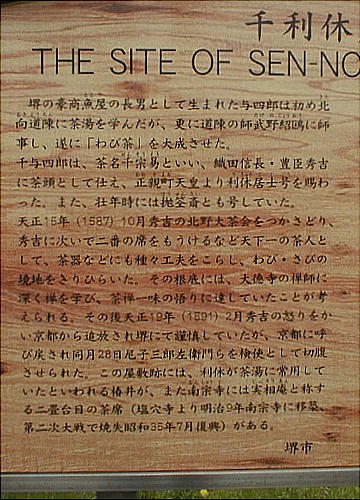 千利休
THE SITE OF SEN-NO
堺の豪商魚屋の長男として生まれた与四郎は初め北
向道陳に茶湯を学んだが、更に道陳の師武野紹鴎に師
事し、遂に「わび茶」を大成させた。
千与四郎は、茶名千宗易といい、織田信長・豊臣秀吉
に茶頭として仕え、正親町天皇より利休居士号を賜わ
った。また、壮年時には抛筌斎とも号していた。
天正15年（1587）10月秀吉の北野大茶会をつかさどり、
秀吉に次いで二番の席をもうけるなど天下一の茶人と
して、茶器などにも種々工夫をこらし、わび・さびの
境地をさりひらいた。その根底には、大徳寺の禅師に
深く禅を学び、茶禅一味の悟りに達していたことが考
えられる。その後天正19年（1591）2月秀吉の怒りをか
い京都から追放され堺にて謹慎していたが、京都に呼
び戻され同月28日尼子三郎左衛門らを検使として切腹
させられた。この屋敷跡には、利休が茶湯に常用して
いたといわれる椿井が、また南宗寺には実相庵と称す
る二畳台目の茶席（塩穴寺より明治9年南宗寺に移築、
第二次大戦で焼失昭和35年7月復興）がある。
堺市